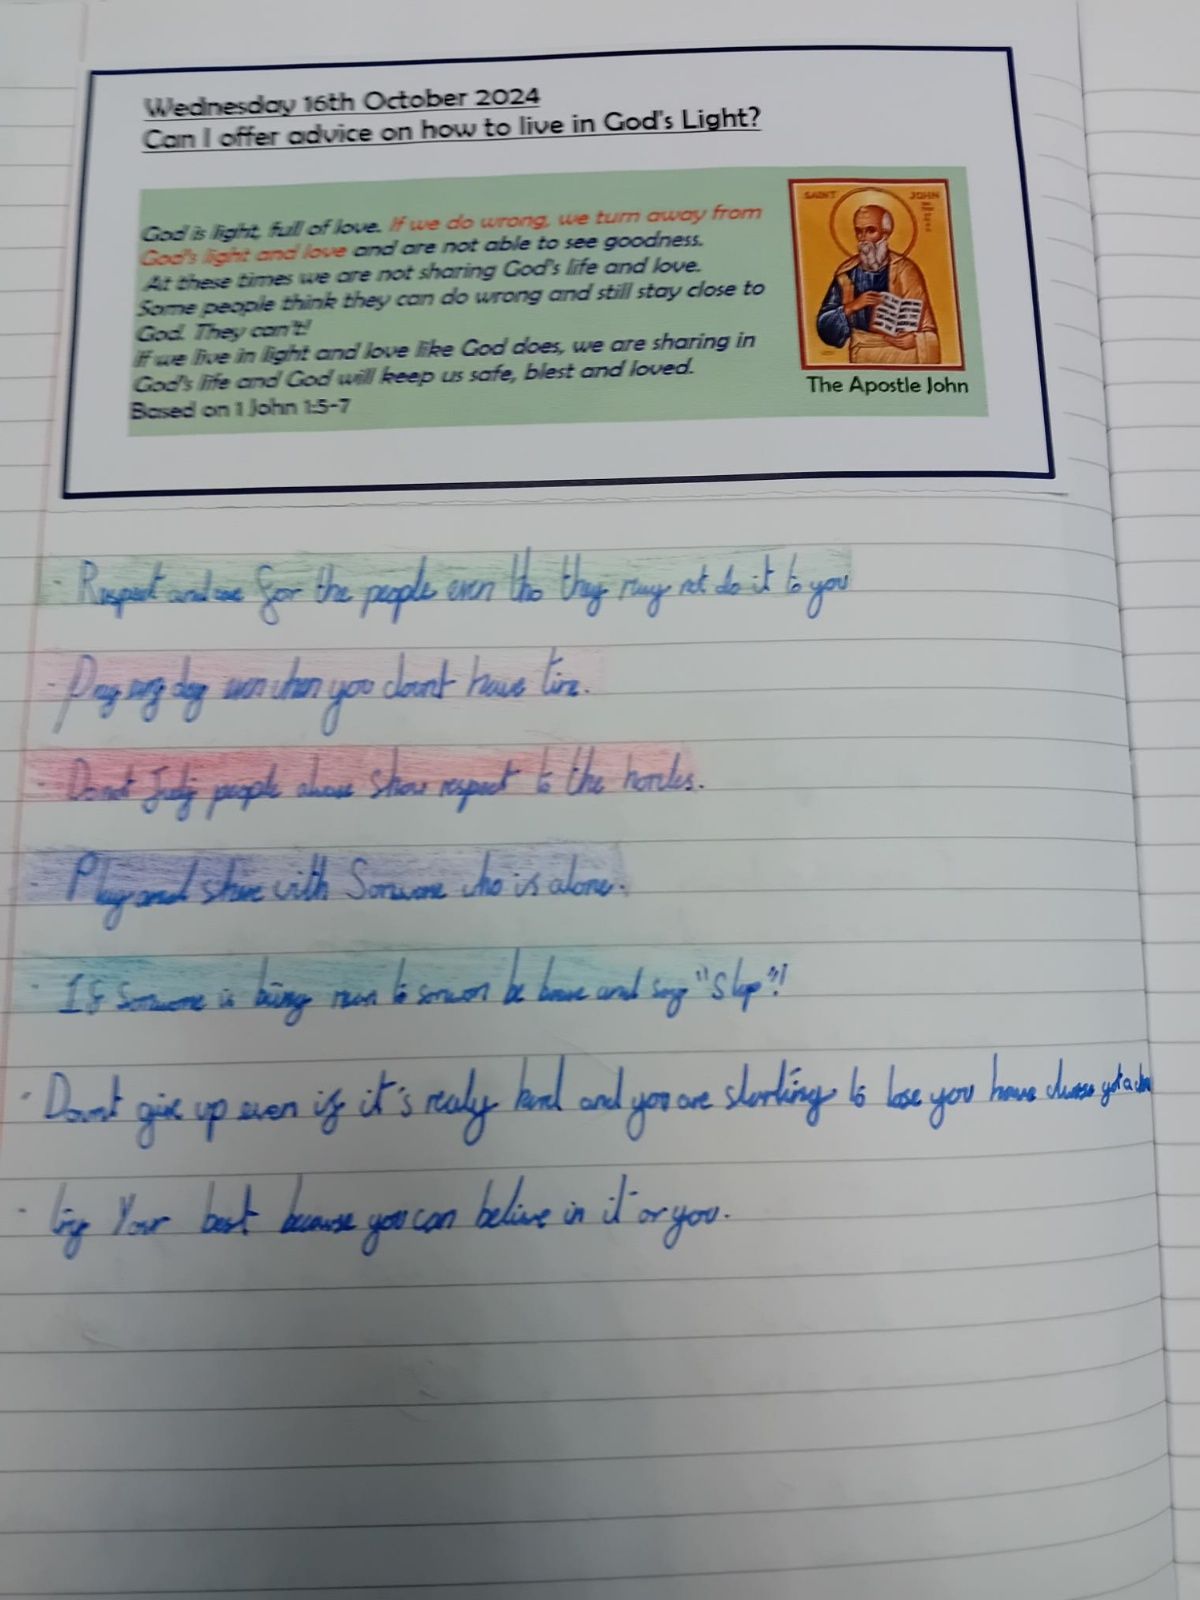 Wednesday 16th October 2024
Can I offer advice on how to live in God's Light?
God is light, full of love. If we do wrong, we turn away from
God's light and love and are not able to see goodness.
At these times we are not sharing God's life and love.
Some people think they can do wrong and still stay close to
God. They can't!
If we live in light and love like God does, we are sharing in
God's life and God will keep us safe, blest and loved.
Based on 1 John 1:5-7
SAINT JOHN
The Apostle John
· Respect and for the people even tho they may not do it to you
· Pray day when you dount have
· people show respect to the
· Play and share with Somwone who is alone.
· If Somwone is being mean to somwon be brave and say "Stop"!
· Dount give up even if it's realy hard and you are starting to lose you have
· try Your best because you can belive in it or you.